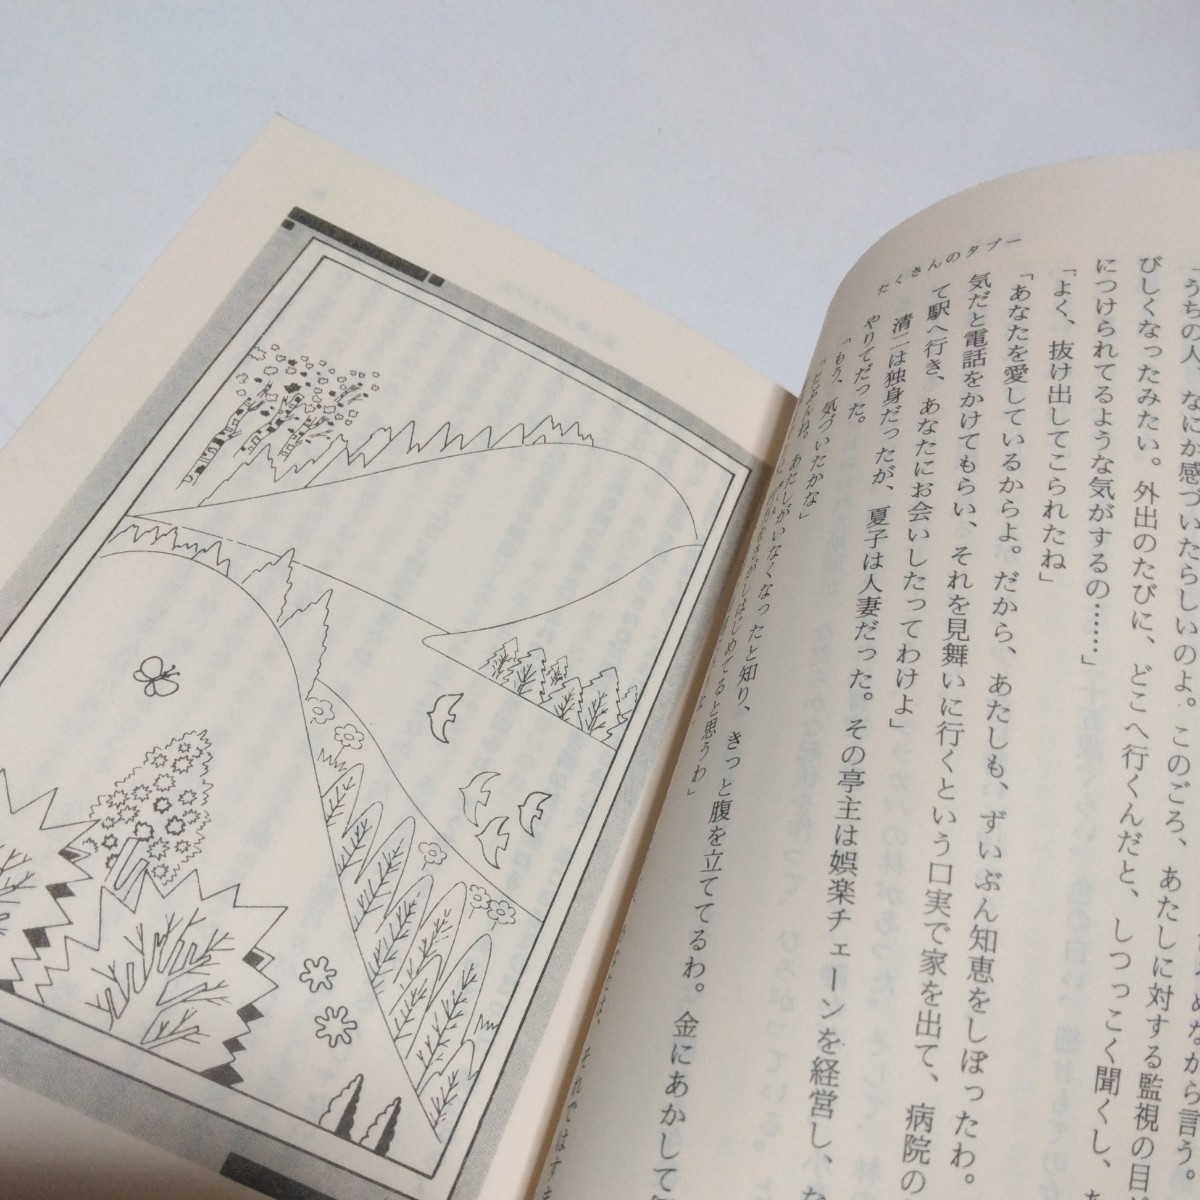 たくさんのタブー
めながら言う。
「うちの人、なにか感づいたらしいのよ。このごろ、あたしに対する監視の目が
びしくなったみたい。外出のたびに、どこへ行くんだと、しつっこく聞くし、
につけられてるような気がするの……」
「よく、抜け出してこられたね」
「あなたを愛しているからよ。だから、あたしも、ずいぶん知恵をしぼったわ。
気だと電話をかけてもらい、それを見舞いに行くという口実で家を出て、病院の
て駅へ行き、あなたにお会いしたってわけよ」
清二は独身だったが、夏子は人妻だった。その亭主は娯楽チェーンを経営し、な
やりてだった。
「もう、気づいたかな」
「たぶんね。あたしがいなくなったと知り、きっと腹を立ててるわ。金にあかして
しはじめてると思うわ」
それではすま